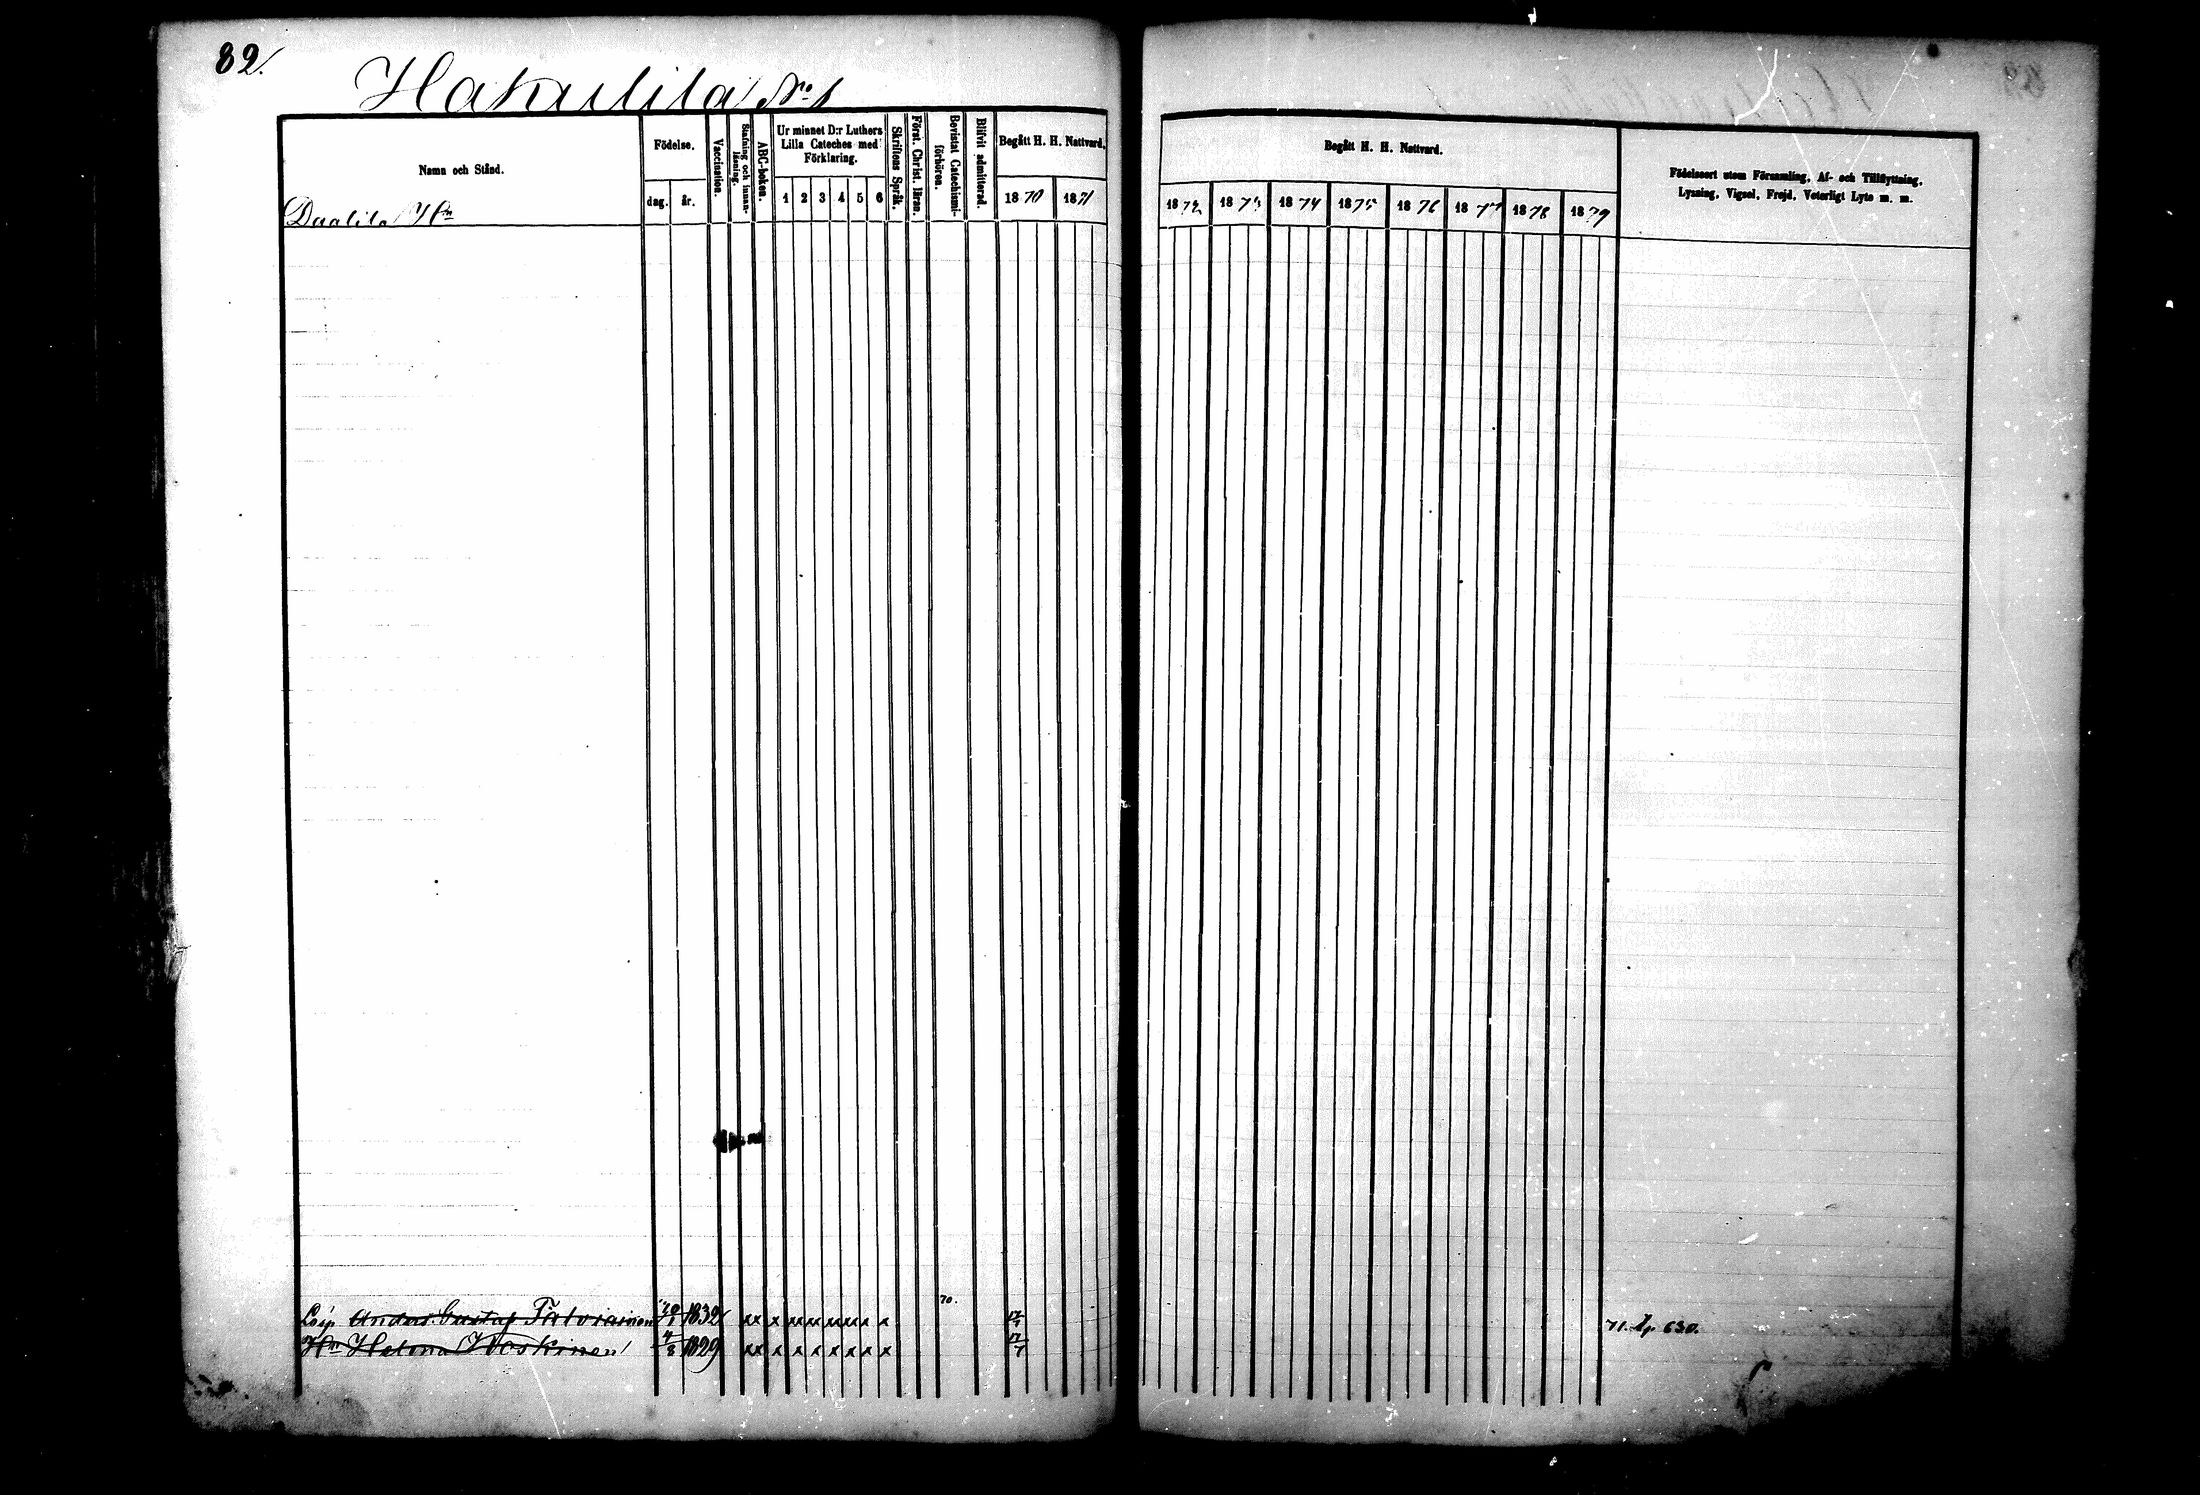 82.
Hakulila No 1
Namn och Stånd.
Födelse.
dag. år.
Vaccination.
Stafning och innan-
läsning.
ABC-boken.
Ur minnet D:r Luthers
Lilla Cateches med
Förklaring.
1 2 3 4 5 6
Skriftens Språk.
Först. Christ. läran.
Bevistat Catechismi-
förhören.
Blifvit admitterad.
Begått H. H. Nattvard.
1870 1871
Begått H. H. Nattvard.
1872 1873 1874 1875 1876 1877 1878 1879
Födelseort utom Församling, Af- och Tillflyttning,
Lysning, Vigsel, Frejd, Veterligt Lyte m. m.
70.
Anders Gustaf 1832 x x x x x x x x x 17/7 71. 630.
Helena Koskinen 4/8 1829 x x x x x x x x x 17/7